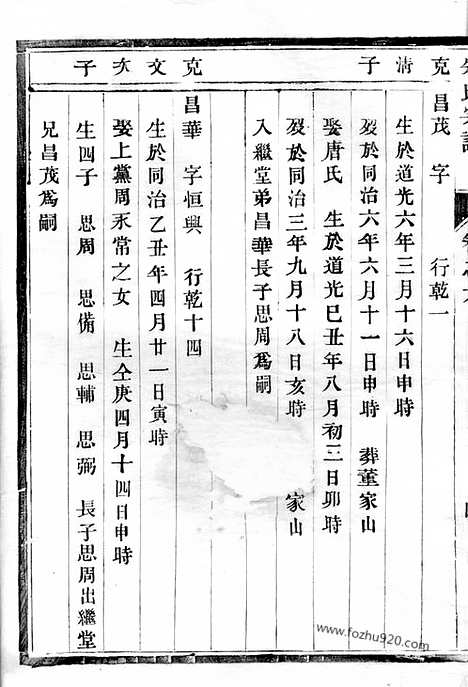 克 昌茂 字 行乾一
清 生於道光六年三月十六日申時
子 歿於同治六年六月十一日申時 葬董家山
娶唐氏 生於道光巳丑年八月初三日卯時
歿於同治三年九月十八日亥時 家山
入繼堂弟昌華長子思周為嗣
克 昌華 字恒興 行乾十四
文 生於同治乙丑年四月廿一日寅時
次 娶上黨周永常之女 生仝庚四月十四日申時
子 生四子 思周 思備 思輔 思弼 長子思周出繼堂
兄昌茂為嗣
www.fozhu920.com